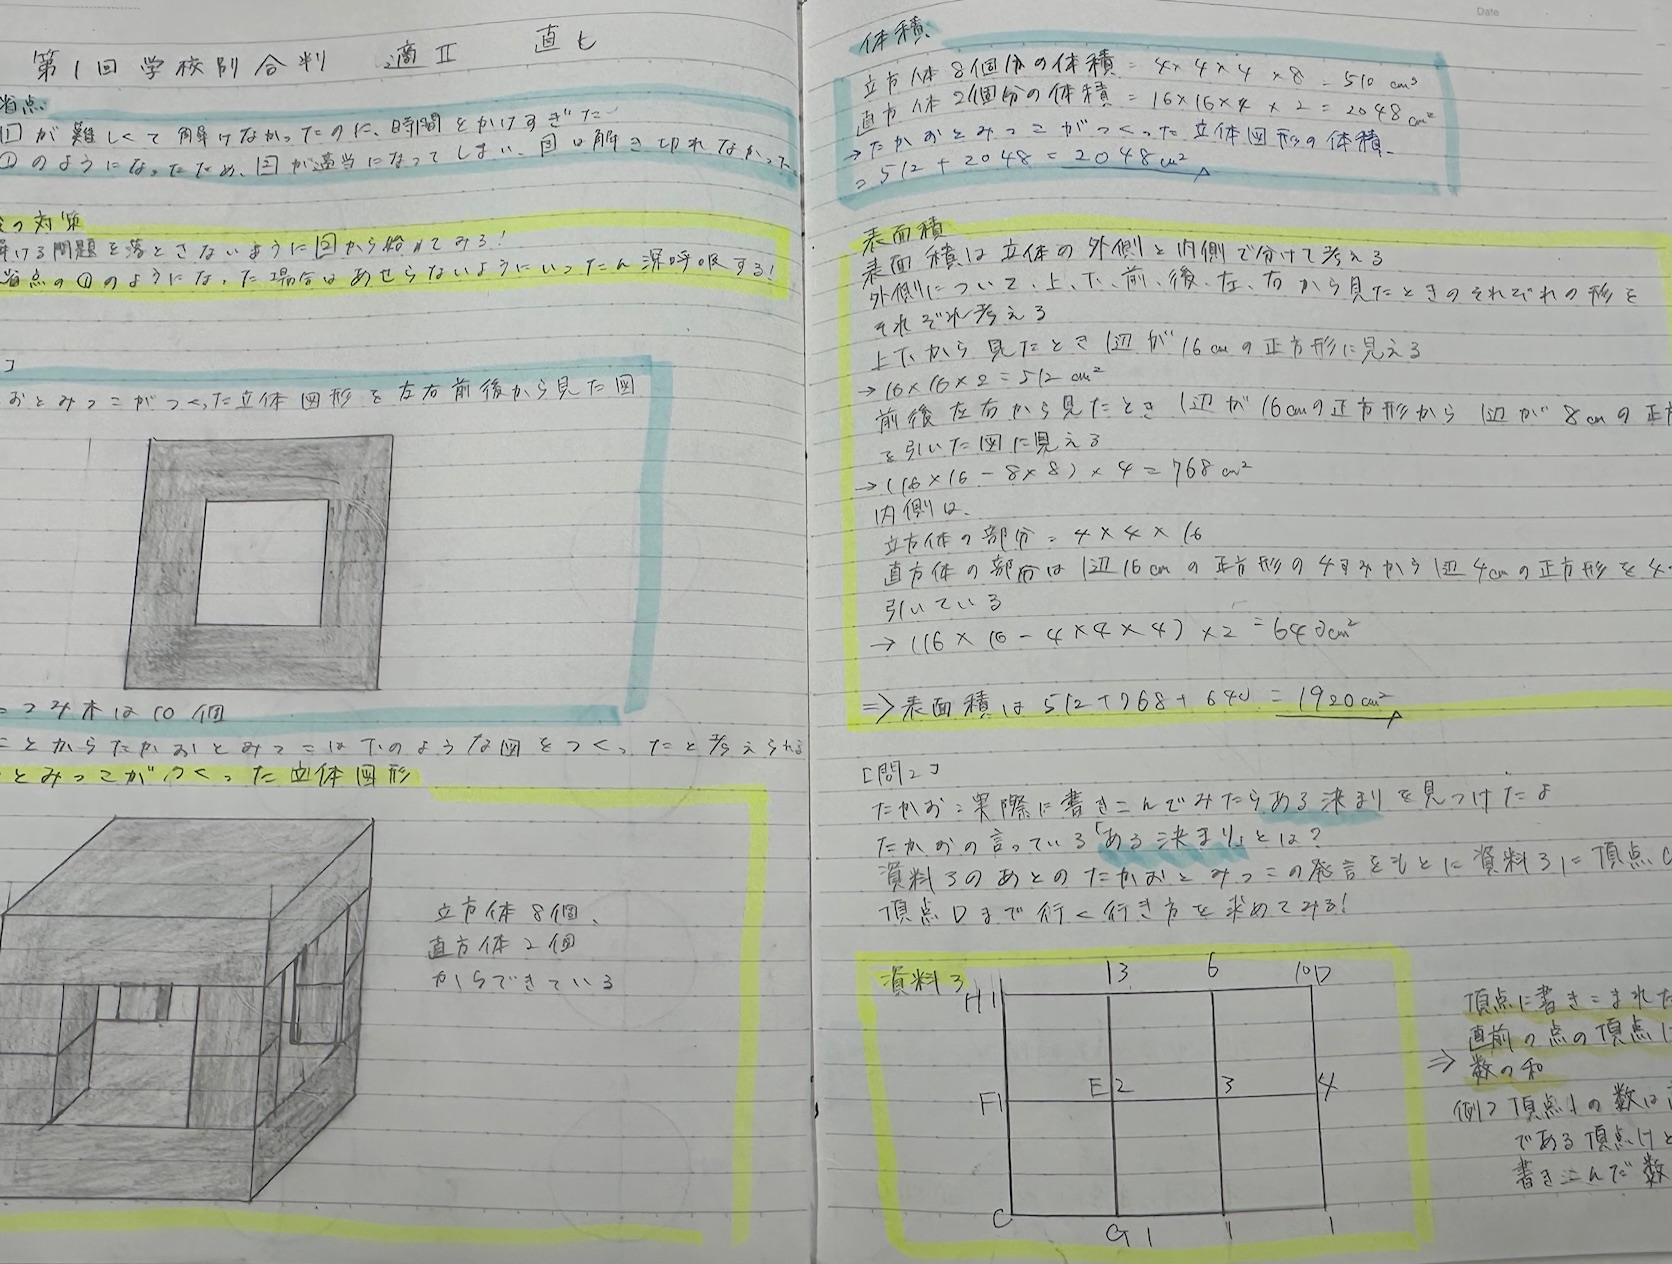 第1回学校別合判 適Ⅱ 直し
省点
1が難しくて解けなかったのに、時間をかけすぎた
①のようになったため、図が適当になってしまい、図は解き切れなかった
の対策
解ける問題を落とさないように図から始めてみる!
省点の①のようになった場合はあせらないようにいったん深呼吸する!
]
おとみつこがつくった立体図形を左右前後から見た図
つみ木は10個
ことからたかおとみつこは下のような図をつくったと考えられる
とみつこがつくった立体図形
立方体8個、
直方体2個
からできている
Date
体積
立方体8個分の体積=4×4×4×8=510cm³
直方体2個分の体積=16×16×4×2=2048cm²
→たかおとみつこがつくった立体図形の体積
=512+2048=2048cm²
表面積
表面積は立体の外側と内側で分けて考える
外側について、上、下、前、後、左、右から見たときのそれぞれの形を
それぞれ考える
上下から見たとき1辺が16cmの正方形に見える
→16×16×2=512cm²
前後左右から見たとき1辺が16cmの正方形から1辺が8cmの正方
を引いた図に見える
→(16×16-8×8)×4=768cm²
内側は、
立方体の部分=4×4×16
直方体の部分は1辺16cmの正方形の4すみから1辺4cmの正方形を4
引いている
→(16×16-4×4×4)×2=640cm²
⇒表面積は512+768+640=1920cm²
[問2]
たかお:実際に書きこんでみたらある決まりを見つけたよ
たかおの言っている「ある決まり」とは?
資料3のあとのたかおとみつこの発言をもとに資料3に頂点C
頂点Dまで行く行き方を求めてみる!
資料3
H1 13 6 10D
F1 E2 3 4
C G1 1 1
頂点に書きこまれた
直前の点の頂点に
⇒数の和
例>頂点Iの数は
である頂点Hと
書きこんだ数